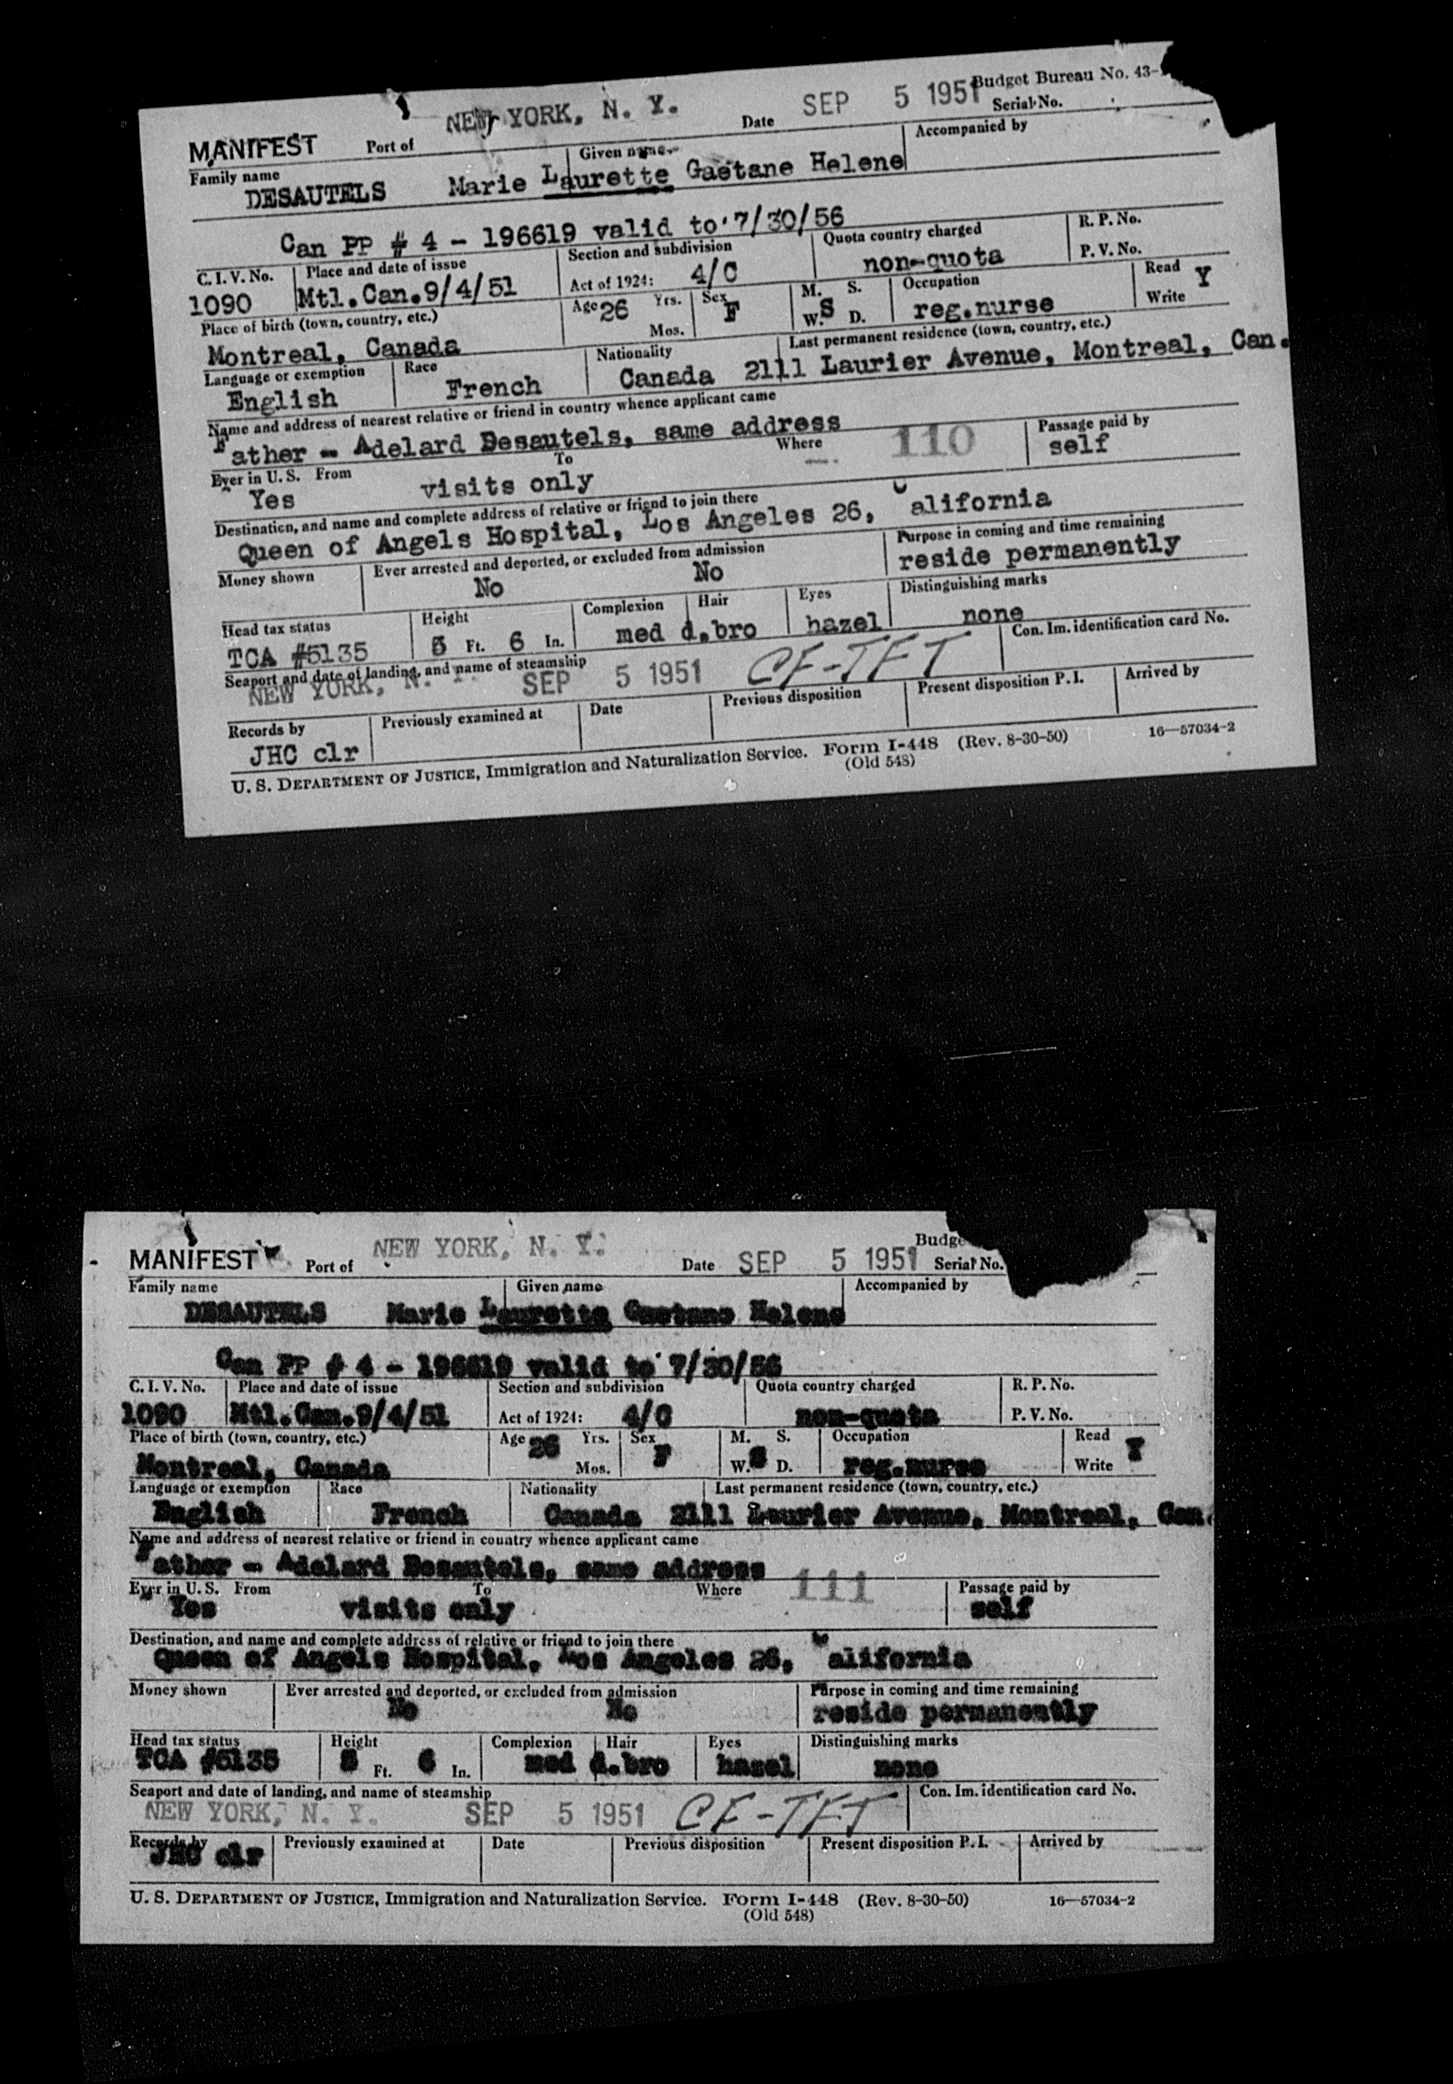 NEW YORK, N. Y. SEP 5 1951 Budget Bureau No. 43-
MANIFEST Port of Date Serial No.
Family name Given name Accompanied by
DESAUTELS Marie Laurette Gaetane Helene
Can PP # 4 - 196619 valid to 7/30/56
C. I. V. No. Place and date of issue Section and subdivision Quota country charged R. P. No.
1090 Mtl.Can.9/4/51 Act of 1924: 4/C non-quota P. V. No.
Place of birth (town, country, etc.) Age 26 Yrs. Sex F M. S. Occupation Read Y
Montreal, Canada Mos. W. S D. reg.nurse Write
Language or exemption Race Nationality Last permanent residence (town, country, etc.)
English French Canada 2111 Laurier Avenue, Montreal, Can.
Name and address of nearest relative or friend in country whence applicant came
Father - Adelard Desautels, same address 110
Ever in U. S. From To Where Passage paid by
Yes visits only self
Destination, and name and complete address of relative or friend to join there
Queen of Angels Hospital, Los Angeles 26, California
Money shown Ever arrested and deported, or excluded from admission Purpose in coming and time remaining
No No reside permanently
Head tax status Height Complexion Hair Eyes Distinguishing marks
TCA #5135 5 Ft. 6 In. med d.bro hazel none
Seaport and date of landing, and name of steamship Con. Im. identification card No.
NEW YORK, N. Y. SEP 5 1951 CF-TFT
Records by Previously examined at Date Previous disposition Present disposition P. I. Arrived by
JHC clr
U. S. DEPARTMENT OF JUSTICE, Immigration and Naturalization Service. Form I-448 (Rev. 8-30-50) 16—57034-2
(Old 548)
NEW YORK, N. Y. SEP 5 1951
MANIFEST Port of Date Serial No.
Family name Given name Accompanied by
DESAUTELS Marie Laurette Gaetane Helene
Can PP # 4 - 196619 valid to 7/30/56
C. I. V. No. Place and date of issue Section and subdivision Quota country charged R. P. No.
1090 Mtl.Can.9/4/51 Act of 1924: 4/C non-quota P. V. No.
Place of birth (town, country, etc.) Age 26 Yrs. Sex F M. S. Occupation Read Y
Montreal, Canada Mos. W. S D. reg.nurse Write
Language or exemption Race Nationality Last permanent residence (town, country, etc.)
English French Canada 2111 Laurier Avenue, Montreal, Can.
Name and address of nearest relative or friend in country whence applicant came
Father - Adelard Desautels, same address
Ever in U. S. From To Where 111 Passage paid by
Yes visits only self
Destination, and name and complete address of relative or friend to join there
Queen of Angels Hospital, Los Angeles 26, California
Money shown Ever arrested and deported, or excluded from admission Purpose in coming and time remaining
No No reside permanently
Head tax status Height Complexion Hair Eyes Distinguishing marks
TCA #5135 5 Ft. 6 In. med d.bro hazel none
Seaport and date of landing, and name of steamship Con. Im. identification card No.
NEW YORK, N. Y. SEP 5 1951 CF-TFT
Records by Previously examined at Date Previous disposition Present disposition P. I. Arrived by
JHC clr
U. S. DEPARTMENT OF JUSTICE, Immigration and Naturalization Service. Form I-448 (Rev. 8-30-50) 16—57034-2
(Old 548)